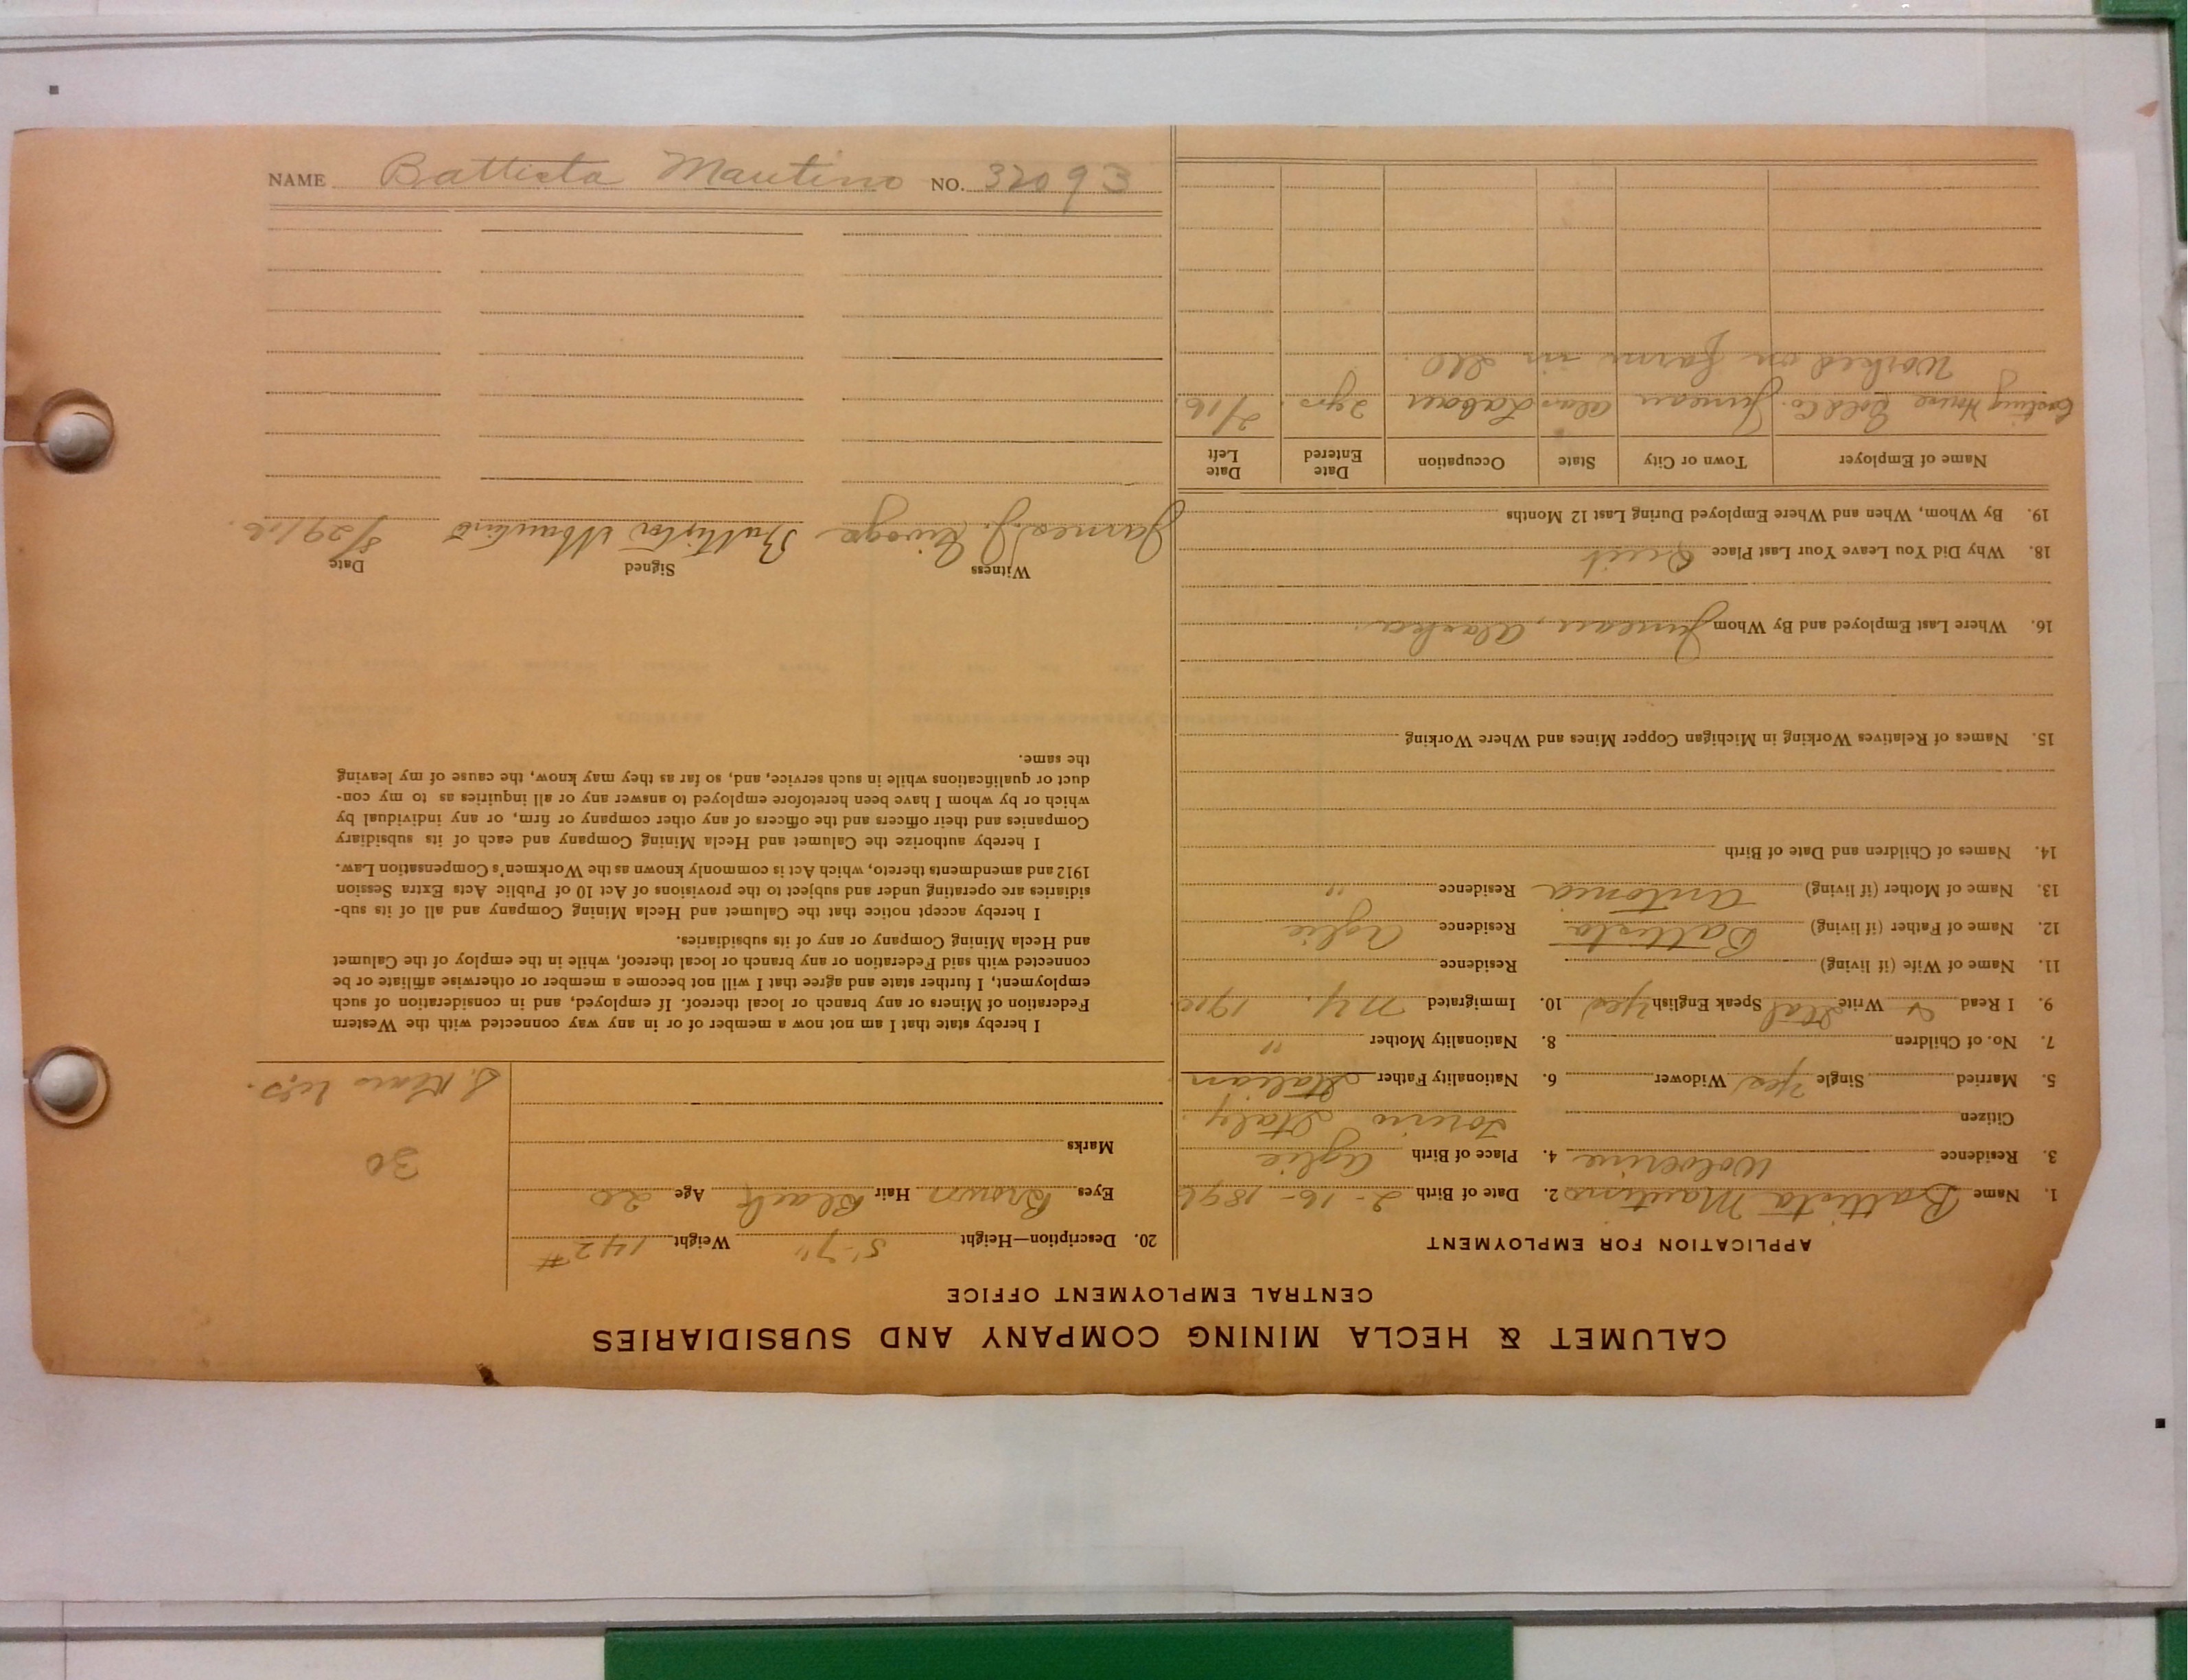 CALUMET & HECLA MINING COMPANY AND SUBSIDIARIES
CENTRAL EMPLOYMENT OFFICE
APPLICATION FOR EMPLOYMENT
1. Name Battista Mautino 2. Date of Birth 2-16-1896
3. Residence Wolverine 4. Place of Birth Aglie
Citizen Torino Italy
5. Married Single Yes Widower 6. Nationality Father Italian
7. No. of Children 8. Nationality Mother "
9. I Read & Write Ital Speak English Yes 10. Immigrated N.Y.
11. Name of Wife (if living) Residence
12. Name of Father (if living) Battista Residence Aglie
13. Name of Mother (if living) Antonia Residence "
14. Names of Children and Date of Birth
15. Names of Relatives Working in Michigan Copper Mines and Where Working
16. Where Last Employed and By Whom Juneau, Alaska.
18. Why Did You Leave Your Last Place Quit
19. By Whom, When and Where Employed During Last 12 Months
Name of Employer Town or City State Occupation Date Entered Date Left
Gold Co. Juneau Alas Labour 2 yrs. 2/16
Worked on farm in Ill.
20. Description—Height 5'-7" Weight 142#
Eyes Brown Hair Black Age 20
Marks
30
I hereby state that I am not now a member of or in any way connected with the Western
Federation of Miners or any branch or local thereof. If employed, and in consideration of such
employment, I further state and agree that I will not become a member or otherwise affiliate or be
connected with said Federation or any branch or local thereof, while in the employ of the Calumet
and Hecla Mining Company or any of its subsidiaries.
I hereby accept notice that the Calumet and Hecla Mining Company and all of its sub-
sidiaries are operating under and subject to the provisions of Act 10 of Public Acts Extra Session
1912 and amendments thereto, which Act is commonly known as the Workmen's Compensation Law.
I hereby authorize the Calumet and Hecla Mining Company and each of its subsidiary
Companies and their officers and the officers of any other company or firm, or any individual by
which or by whom I have been heretofore employed to answer any or all inquiries as to my con-
duct or qualifications while in such service, and, so far as they may know, the cause of my leaving
the same.
Witness Signed Date
James J. Battista Mautino 8/29/16.
NAME Battista Mautino NO. 32093